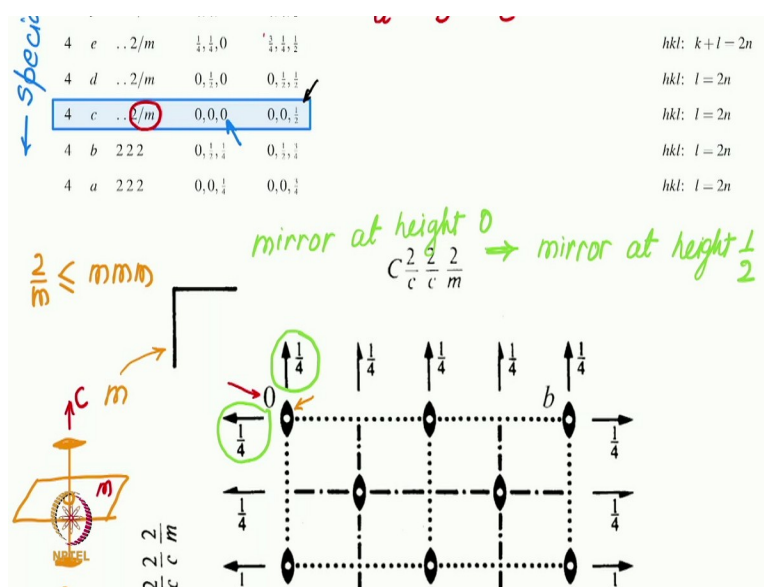 ← speci
4 e ..2/m ¼,¼,0 ¾,¼,½ hkl: k+l=2n
4 d ..2/m 0,½,0 0,½,½ hkl: l=2n
4 c ..2/m 0,0,0 0,0,½ hkl: l=2n
4 b 222 0,½,¼ 0,½,¾ hkl: l=2n
4 a 222 0,0,¼ 0,0,¾ hkl: l=2n
mirror at height 0 ⇒ mirror at height 1/2
C 2/c 2/c 2/m
2/m ≤ mmm
m
¼ ¼ ¼ ¼ ¼
0 b
C
¼ ¼
m
¼ ¼
NPTEL
2/c 2/c 2/m